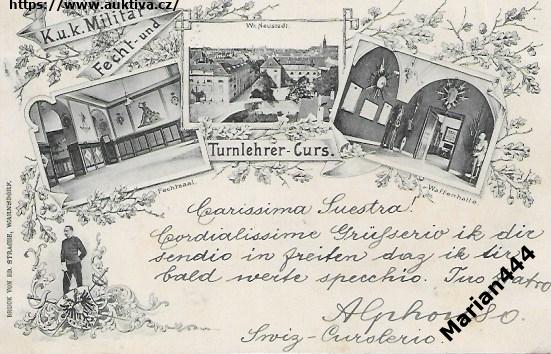 https://www.auktiva.cz/
K.u.k. Militär
Fecht- und
Wr. Neustadt.
Turnlehrer-Curs.
Fechtsaal.
Waffenhalle
DRUCK VON ED. STRACHE, WARNSDORF.
Carissima Suestra!
Cordialissime Grüsserio ik dir
sendio in freiten dag ik
bald werte specchio. Tuo
Alphonso.
Swiz-Curslerio.
Marian444